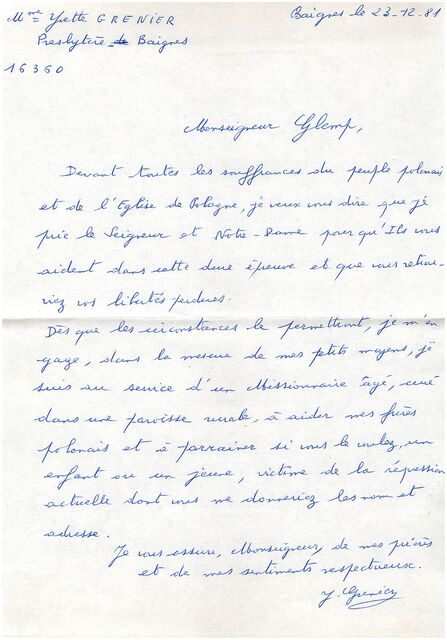 Mme Yvette GRENIER
Presbytère de Baignes
16360
Baignes le 23-12.81
Monseigneur Glemp,
Devant toutes les souffrances du peuple polonais
et de l'Eglise de Pologne, je veux vous dire que je
prie le Seigneur et Notre-Dame pour qu'Ils vous
aident dans cette dure épreuve et que vous retrou-
viez vos libertés perdues.
Dès que les circonstances le permettront, je m'en-
gage, dans la mesure de mes petits moyens, je
suis au service d'un Missionnaire âgé, curé
dans une paroisse rurale, à aider mes frères
polonais et à parrainer si vous le voulez, un
enfant ou un jeune, victime de la répression
actuelle dont vous me donneriez les nom et
adresse.
Je vous assure, Monseigneur, de mes prières
et de mes sentiments respectueux.
Y. Grenier